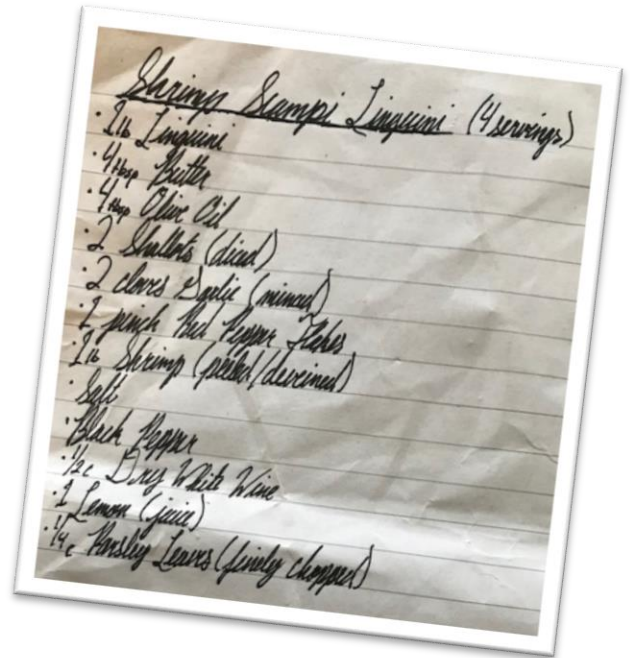 Shrimp Scampi Linguini (4 servings)
· 1 lb Linguini
· 4 tbsp Butter
· 4 tbsp Olive Oil
· 2 Shallots (diced)
· 2 cloves Garlic (minced)
· 1 pinch Red Pepper Flakes
· 1 lb Shrimp (peeled/deveined)
· Salt
· Black Pepper
· 1/2 c Dry White Wine
· 1 Lemon (juice)
· 1/4 c Parsley Leaves (finely chopped)